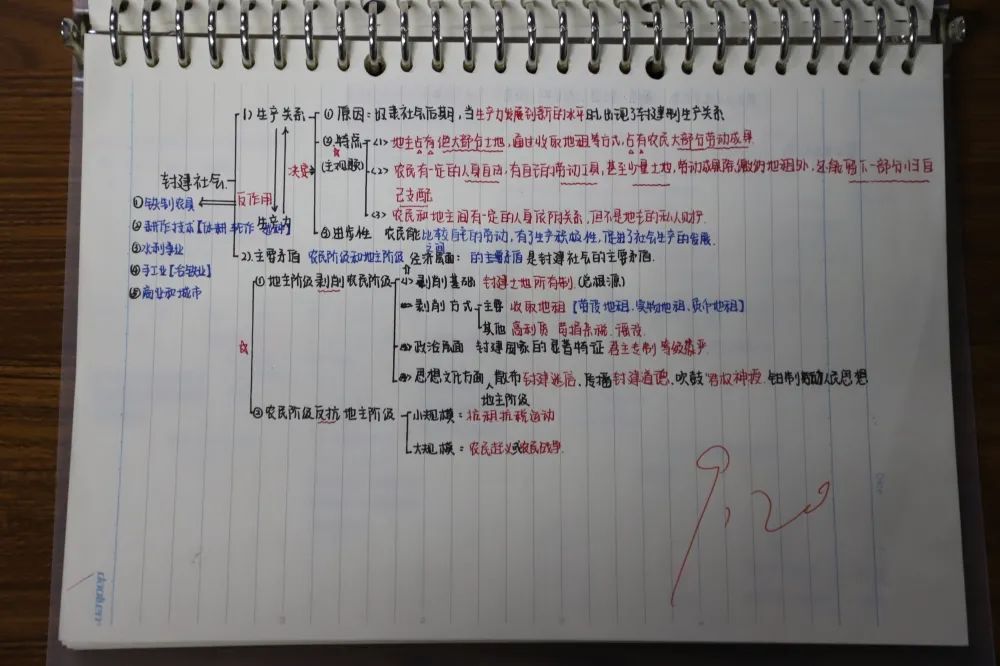 1) 生产关系 ① 原因：奴隶社会后期，当生产力发展到新的水平时，出现了封建制生产关系
② 特点 <1> 地主占有绝大部分土地，通过收取地租等方式，占有农民大部分劳动成果
(主观题) <2> 农民有一定的人身自由，有自己的劳动工具，甚至少量土地，劳动成果除缴纳地租外，还能留下一部分归自
己支配
<3> 农民和地主间有一定的人身依附关系，但不是地主的私人财产.
③ 进步性 农民能比较自主的劳动，有了生产积极性，促进了社会生产的发展.
封建社会
决定
反作用
生产力
①铁制农具
②耕作技术【
③水利事业
④手工业【冶铁业】
⑤商业和城市
2) 主要矛盾 农民阶级和地主阶级之间的主要矛盾是封建社会的主要矛盾.
经济层面：
①地主阶级剥削农民阶级 <1> 剥削基础 封建土地所有制. (总根源)
剥削方式 主要 收取地租【劳役地租、实物地租、货币地租】
其他 高利贷 苛捐杂税 徭役.
政治层面 封建国家的显著特征 君主专制 等级森严.
思想文化方面 散布封建迷信、传播封建道德、吹鼓"君权神授 人民思想
地主阶级
②农民阶级反抗地主阶级 小规模：抗租抗税运动
大规模：农民起义或农民战争.
9.20